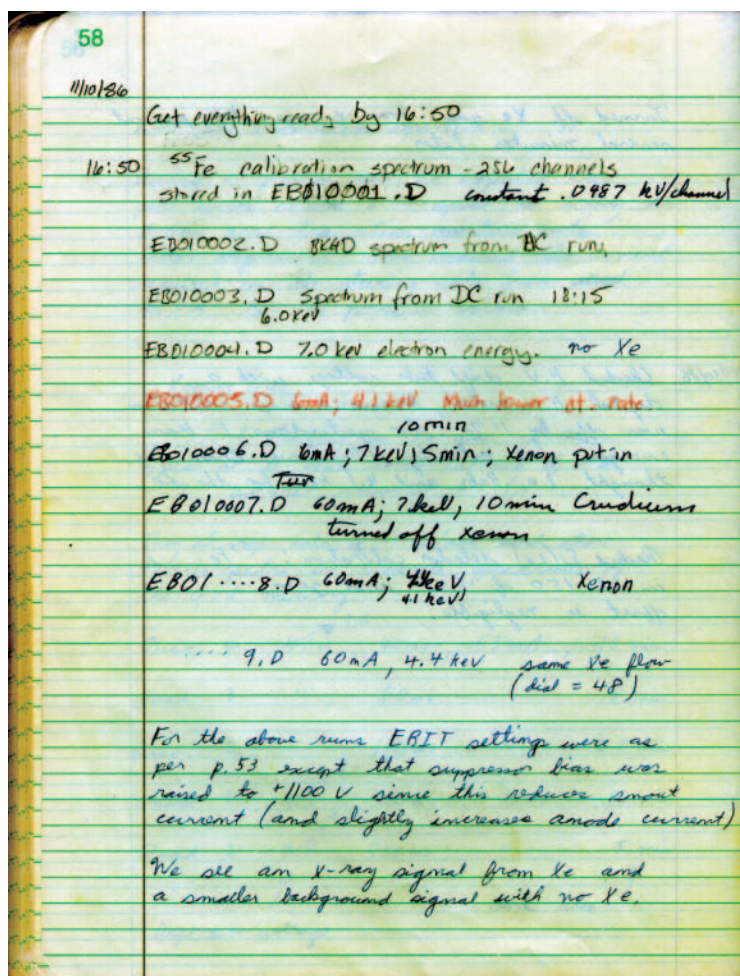 58
11/10/86
Get everything ready by 16:50
16:50 55Fe calibration spectrum - 256 channels
stored in EB010001.D constant .0487 kV/channel
EB010002.D BKGD spectrum from DC run,
EB010003.D Spectrum from DC run 18:15
6.0 keV
EB010004.D 7.0 keV electron energy. no Xe
EB010005.D 6mA; 4.1 keV Much lower ct. rate
10 min
EB010006.D 6mA; 7keV; 5min; Xenon put in
EB010007.D 60mA; 7keV, 10 min Crudium
turned off xenon
EB01....8.D 60mA; keV Xenon
4.1 keV
.....9.D 60mA, 4.4 keV same Xe flow
(dial = 48)
For the above runs EBIT settings were as
per p. 53 except that suppressor bias was
raised to +1100 V since this reduces snout
current (and slightly increases anode current)
We see an x-ray signal from Xe and
a smaller background signal with no Xe.